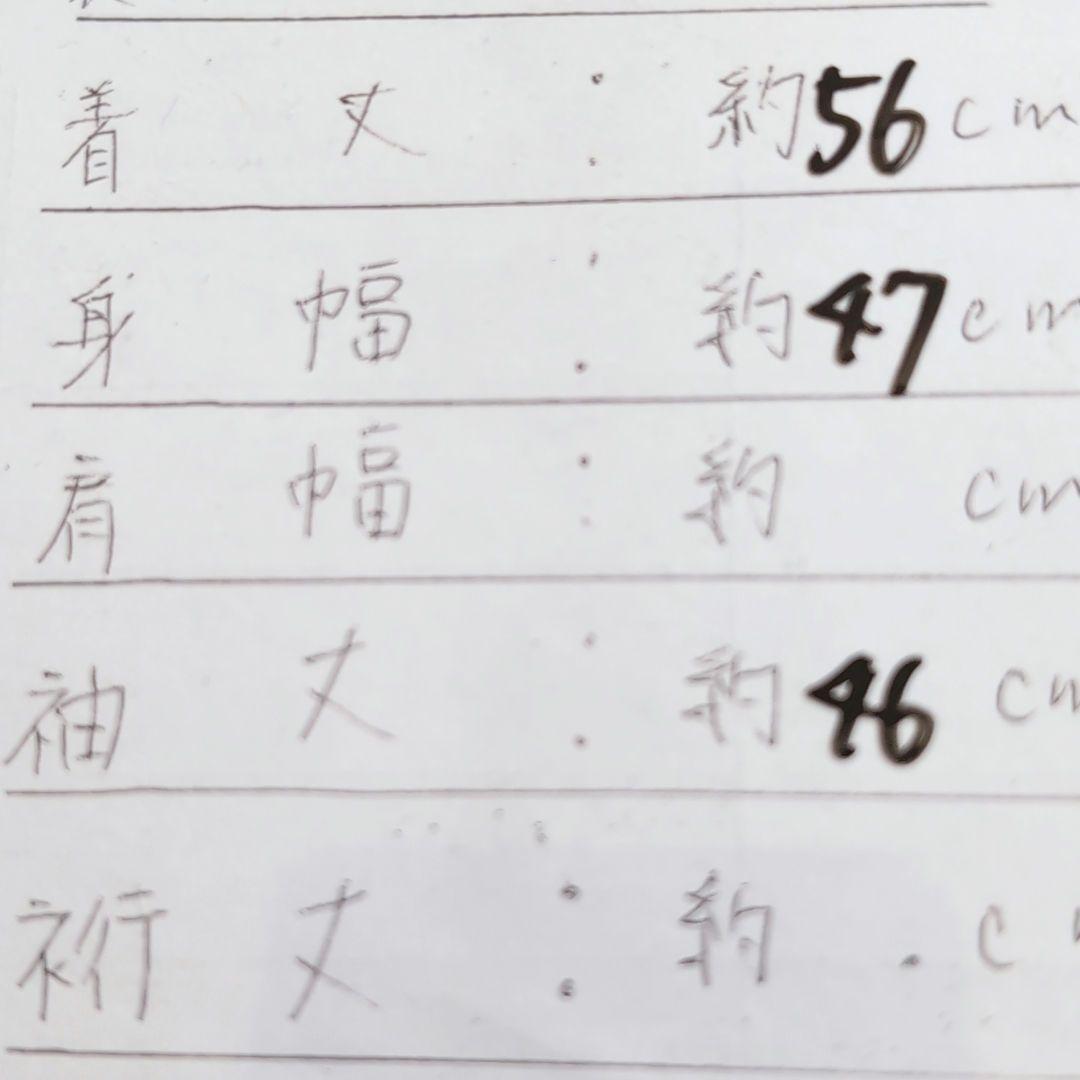 着丈：約56cm
身幅：約47cm
肩幅：約 cm
袖丈：約46cm
裄丈：約 . c